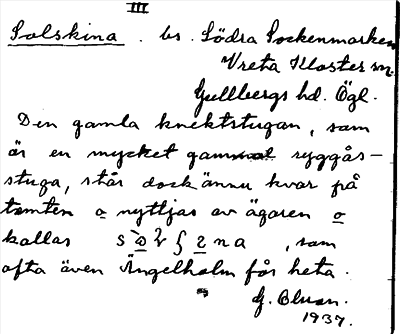 III
Solskina . bs. Södra Sockenmarken
Vreta Kloster sn.
Gullbergs hd. Ögl.
Den gamla knektstugan, som
är en mycket gammal ryggås-
stuga, står dock ännu kvar på
tomten o nyttjas av ägaren o
kallas , som
ofta även Ängelholm får heta.
G. Blman.
1937.